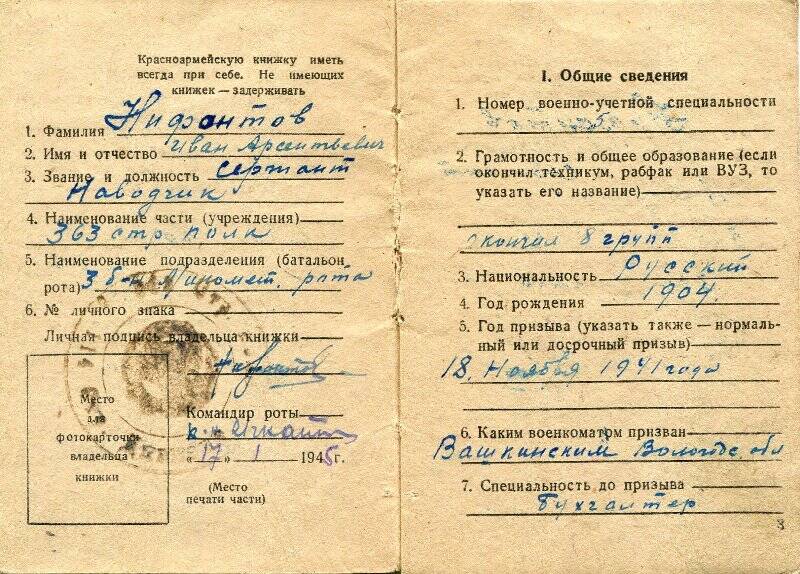 Красноармейскую книжку иметь
всегда при себе. Не имеющих
книжек — задерживать
1. Фамилия Нифонтов
2. Имя и отчество Иван Арсентьевич
3. Звание и должность сержант
Наводчик
4. Наименование части (учреждения)
363 стр. полк
5. Наименование подразделения (батальон,
рота) 3 б-н Миномет. рота
6. № личного знака
Личная подпись владельца книжки
Нифонтов
Место
для
фотокарточки
владельца
книжки
Командир роты
к-н
„17" 1 1945 г.
(Место
печати части)
I. Общие сведения
1. Номер военно-учетной специальности
2. Грамотность и общее образование (если
окончил техникум, рабфак или ВУЗ, то
указать его название)
окончил 8 групп
3. Национальность Русский
4. Год рождения 1904.
5. Год призыва (указать также — нормаль-
ный или досрочный призыв)
18. Ноября 1941 года
6. Каким военкоматом призван
Вашкинским Вологодс. обл
7. Специальность до призыва
бухгалтер
3